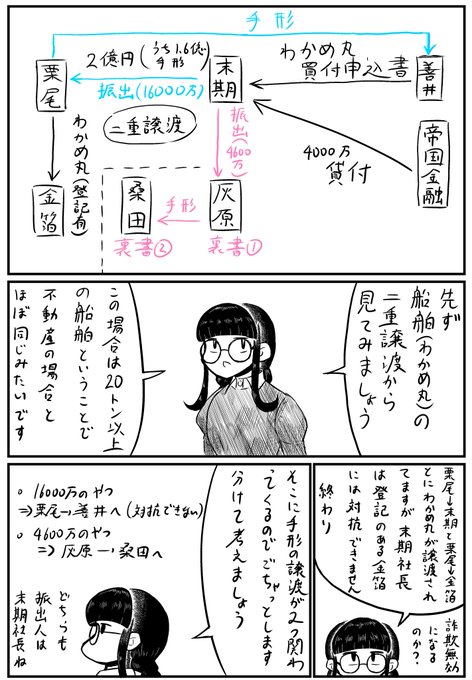 手形
栗尾
2億円(うち1.6億手形)
振出(16000万)
末期
わかめ丸
買付申込書
善井
二重譲渡
振出(4600万)
4000万
貸付
帝国金融
わかめ丸(登記有)
金箔
桑田
手形
灰原
裏書②
裏書①
先ず
船舶(わかめ丸)の
二重譲渡から
見てみましょう
この場合は20トン以上
の船舶ということで
不動産の場合と
ほぼ同じみたいです
栗尾→末期と栗尾→金箔
とにわかめ丸が譲渡され
てますが末期社長
は登記のある金箔
には対抗できません
終わり
詐欺無効
になる
のか?
そこに手形の譲渡が2つ関わ
ってくるのでごちゃっとします
分けて考えましょう
○ 16000万のやつ
⇒栗尾→善井へ(対抗できない)
○ 4600万のやつ
⇒灰原→桑田へ
どちらも
振出人は
末期社長ね